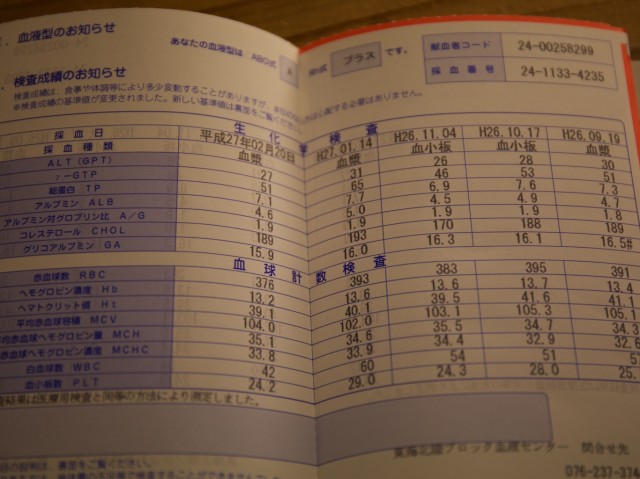 血液型のお知らせ
あなたの血液型は ABO式 A Rh式 プラス です。
献血者コード 24-00258299
採血番号 24-1133-4235
検査成績のお知らせ
検査成績は、食事や体調等により多少変動することがありますが、
は心配する必要はありません。
※検査成績の基準値が変更されました。新しい基準値は裏面をご覧ください。
生化学検査
採血日 平成27年02月20日 H27.01.14 H26.11.04 H26.10.17 H26.09.19
採血種類 血漿 血漿 血小板 血小板 血漿
ALT(GPT) 27 31 26 28 30
γ-GTP 51 65 46 53 51
総蛋白 TP 7.1 7.7 6.9 7.6 7.3
アルブミン ALB 4.6 5.0 4.5 4.9 4.7
アルブミン対グロブリン比 A/G 1.9 1.9 1.9 1.9 1.8
コレステロール CHOL 189 193 170 188 189
グリコアルブミン GA 15.9 16.0 16.3 16.1 16.5#
血球計数検査
赤血球数 RBC 376 393 383 395 391
ヘモグロビン濃度 Hb 13.2 13.6 13.6 13.7 13.4
ヘマトクリット値 Ht 39.1 40.1 39.5 41.6 41.1
平均赤血球容積 MCV 104.0 102.0 103.1 105.3 105.1
平均赤血球ヘモグロビン量 MCH 35.1 34.6 35.5 34.7 34.3
赤血球ヘモグロビン濃度 MCHC 33.8 33.9 34.4 32.9 32.6
白血球数 WBC 42 60 54 51 51
血小板数 PLT 24.2 29.0 24.3 28.0 25.
査結果は医療用検査と同等の方法により測定しました。
東海北陸ブロック血液センター 問合せ先
076-237-374
目の説明は、裏面をご覧ください。